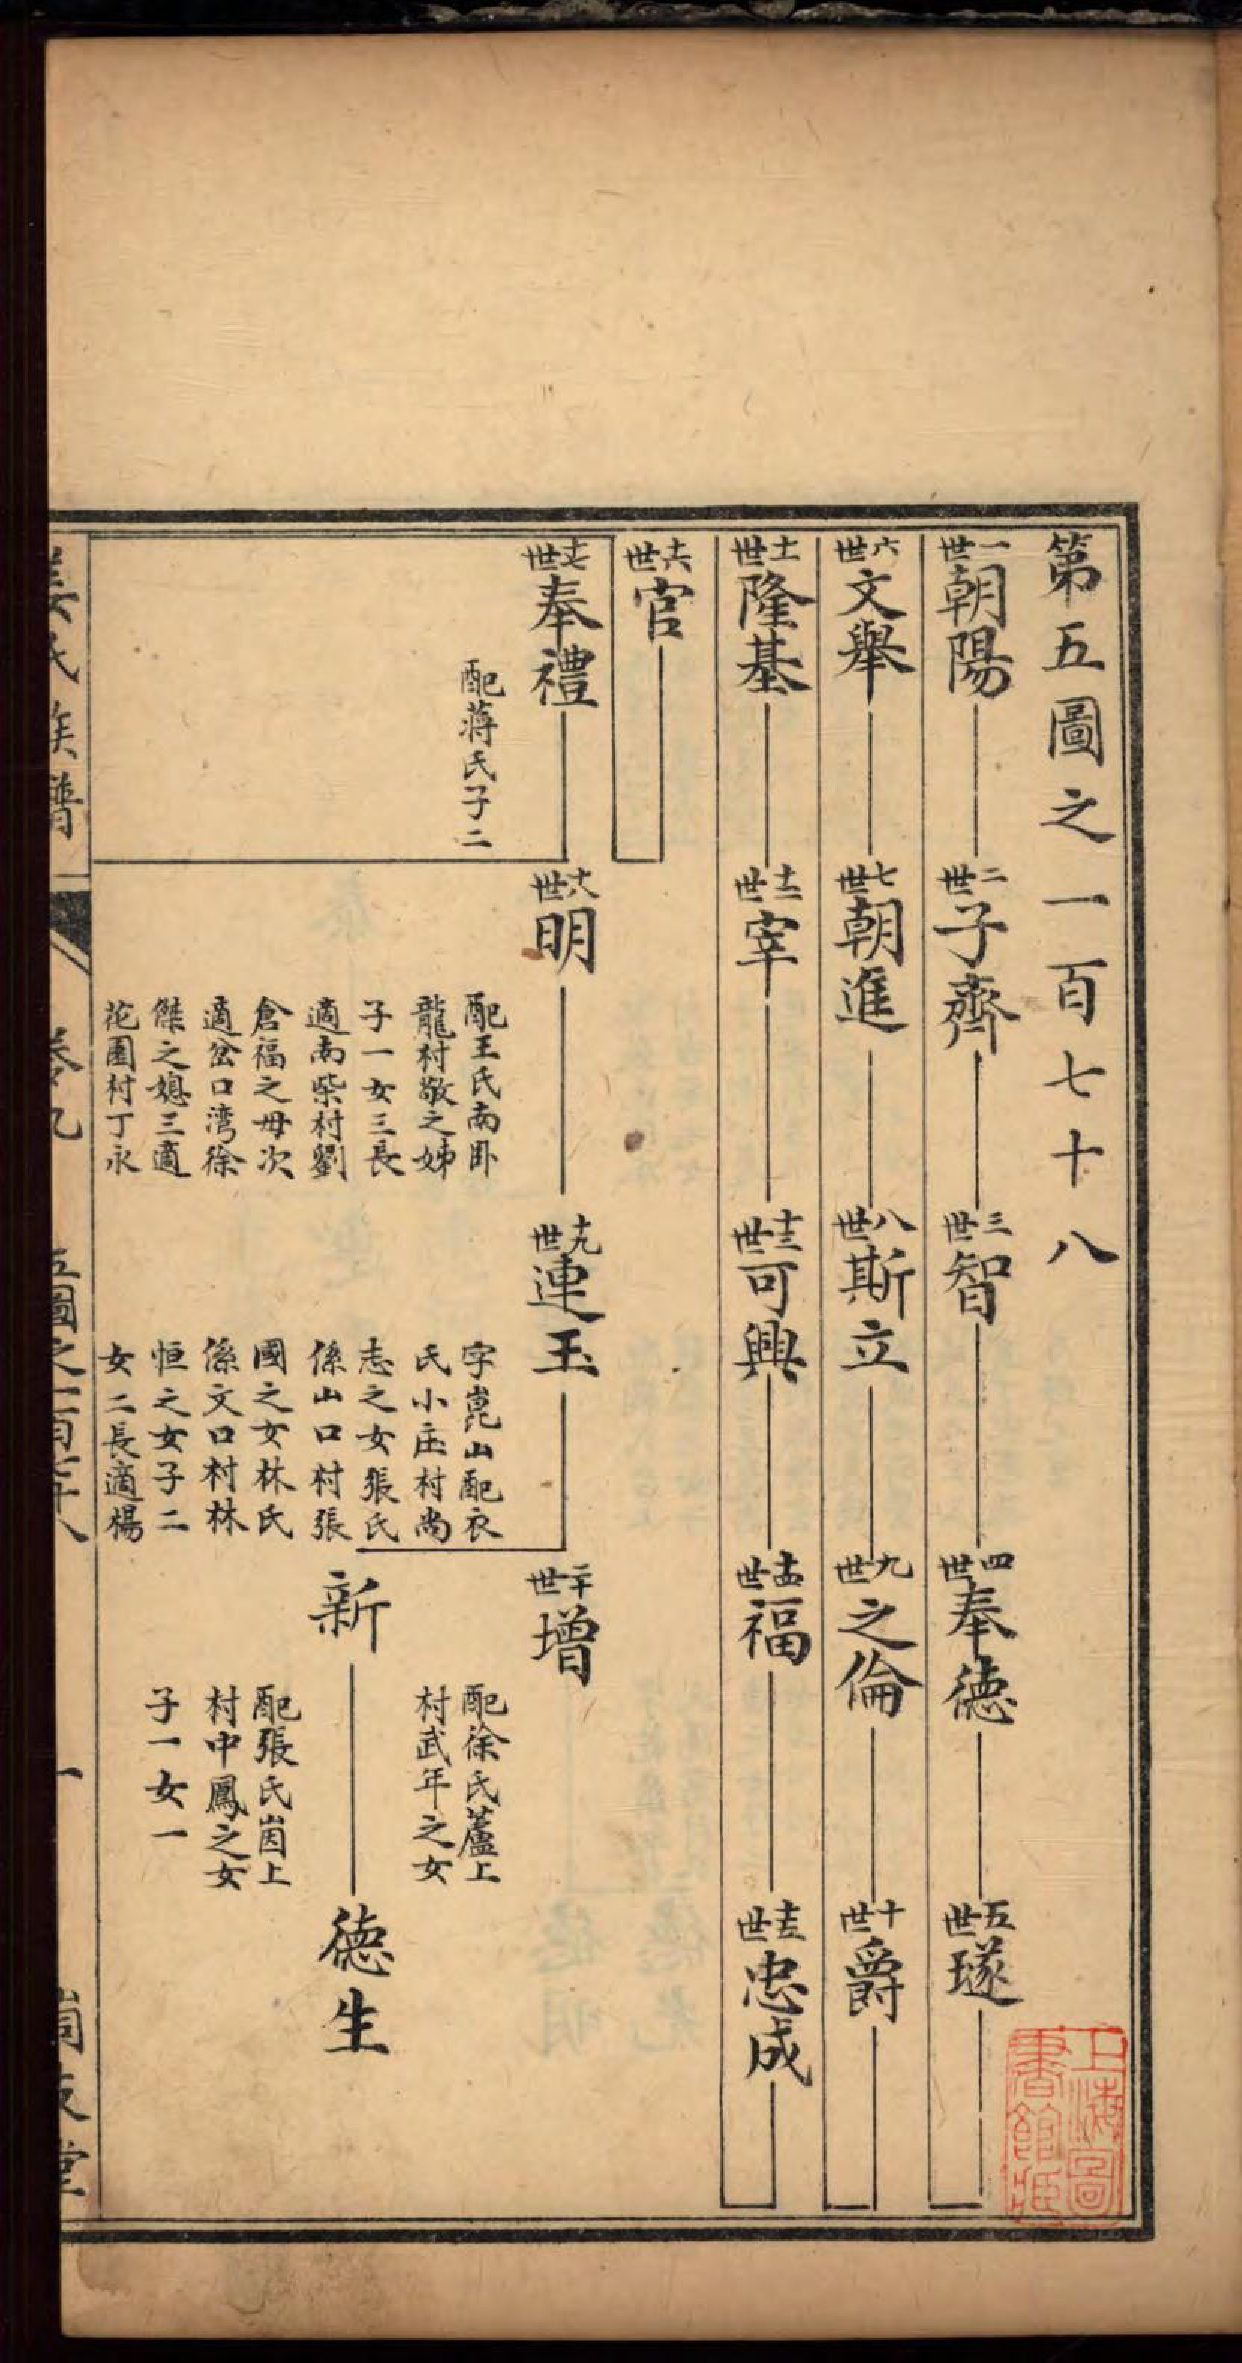 第五圖之一百七十八
一世 朝陽 二世 子齊 三世 智 四世 奉德 五世 璲
六世 文舉 七世 朝進 八世 斯立 九世 之倫 十世 爵
十一世 隆基 十二世 宰 十三世 可興 十四世 福 十五世 忠成
十六世 官
十七世 奉禮 十八世 明 十九世 連玉 二十世 增
配蔣氏子二
配王氏南卧
龍村敬之姊
子一女三長
適南柴村劉
倉福之母次
適岔口湾徐
傑之媳三適
花園村丁永
字崑山配衣
氏小庄村尚
志之女張氏
係山口村張
國之女林氏
係文口村林
恒之女子二
女二長適楊
配徐氏蘆上
村武年之女
新 德生
配張氏崮上
村中鳳之女
子一女一
氏族譜 卷九 五圖之一百七十八 一 堂
上海圖書館藏